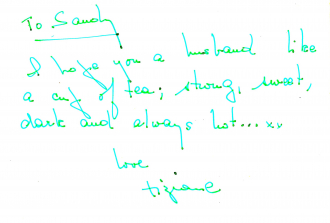 To Sandy
I hope you a husband like
a cup of tea; strong, sweet,
dark and always hot...xx
love
tiziane